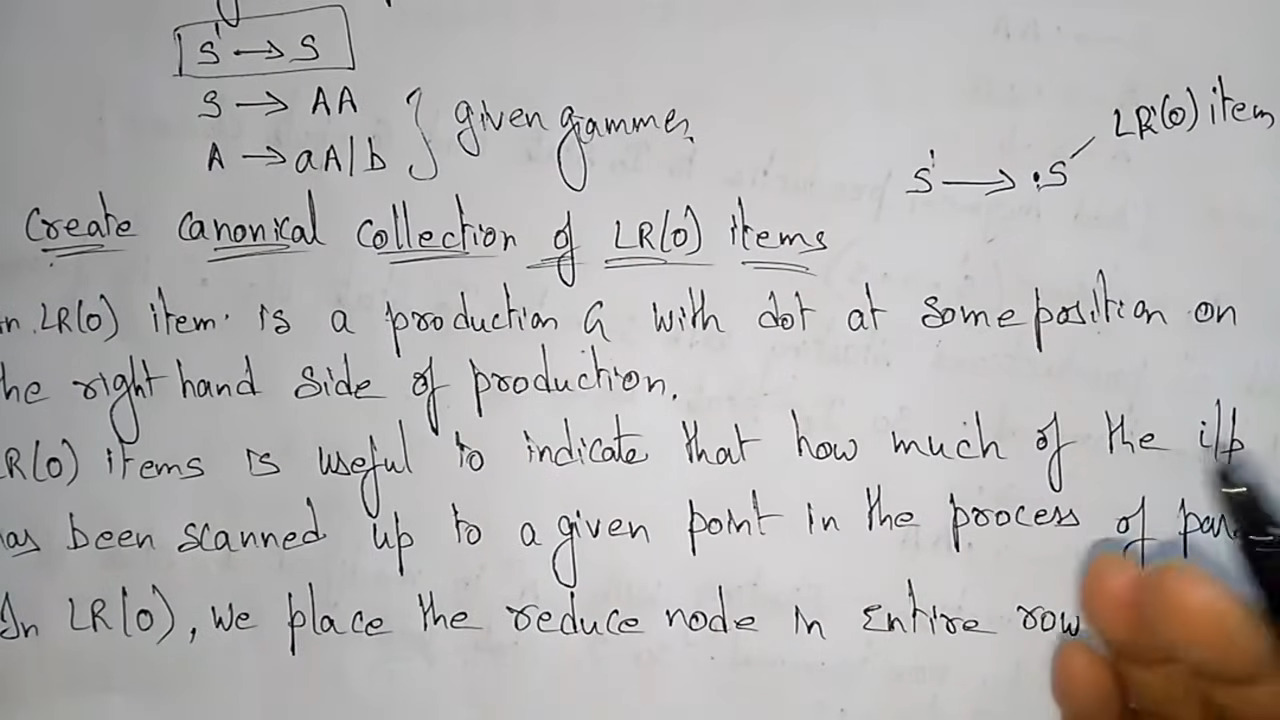 S' → S
S → AA
A → aA/b } given grammer.
S' → .S LR(0) item
Create canonical collection of LR(0) items
LR(0) item is a production G with dot at some position on
right hand side of production.
items is useful to indicate that how much of the i/p
been scanned up to a given point in the process of
In LR(0), we place the reduce node in entire row